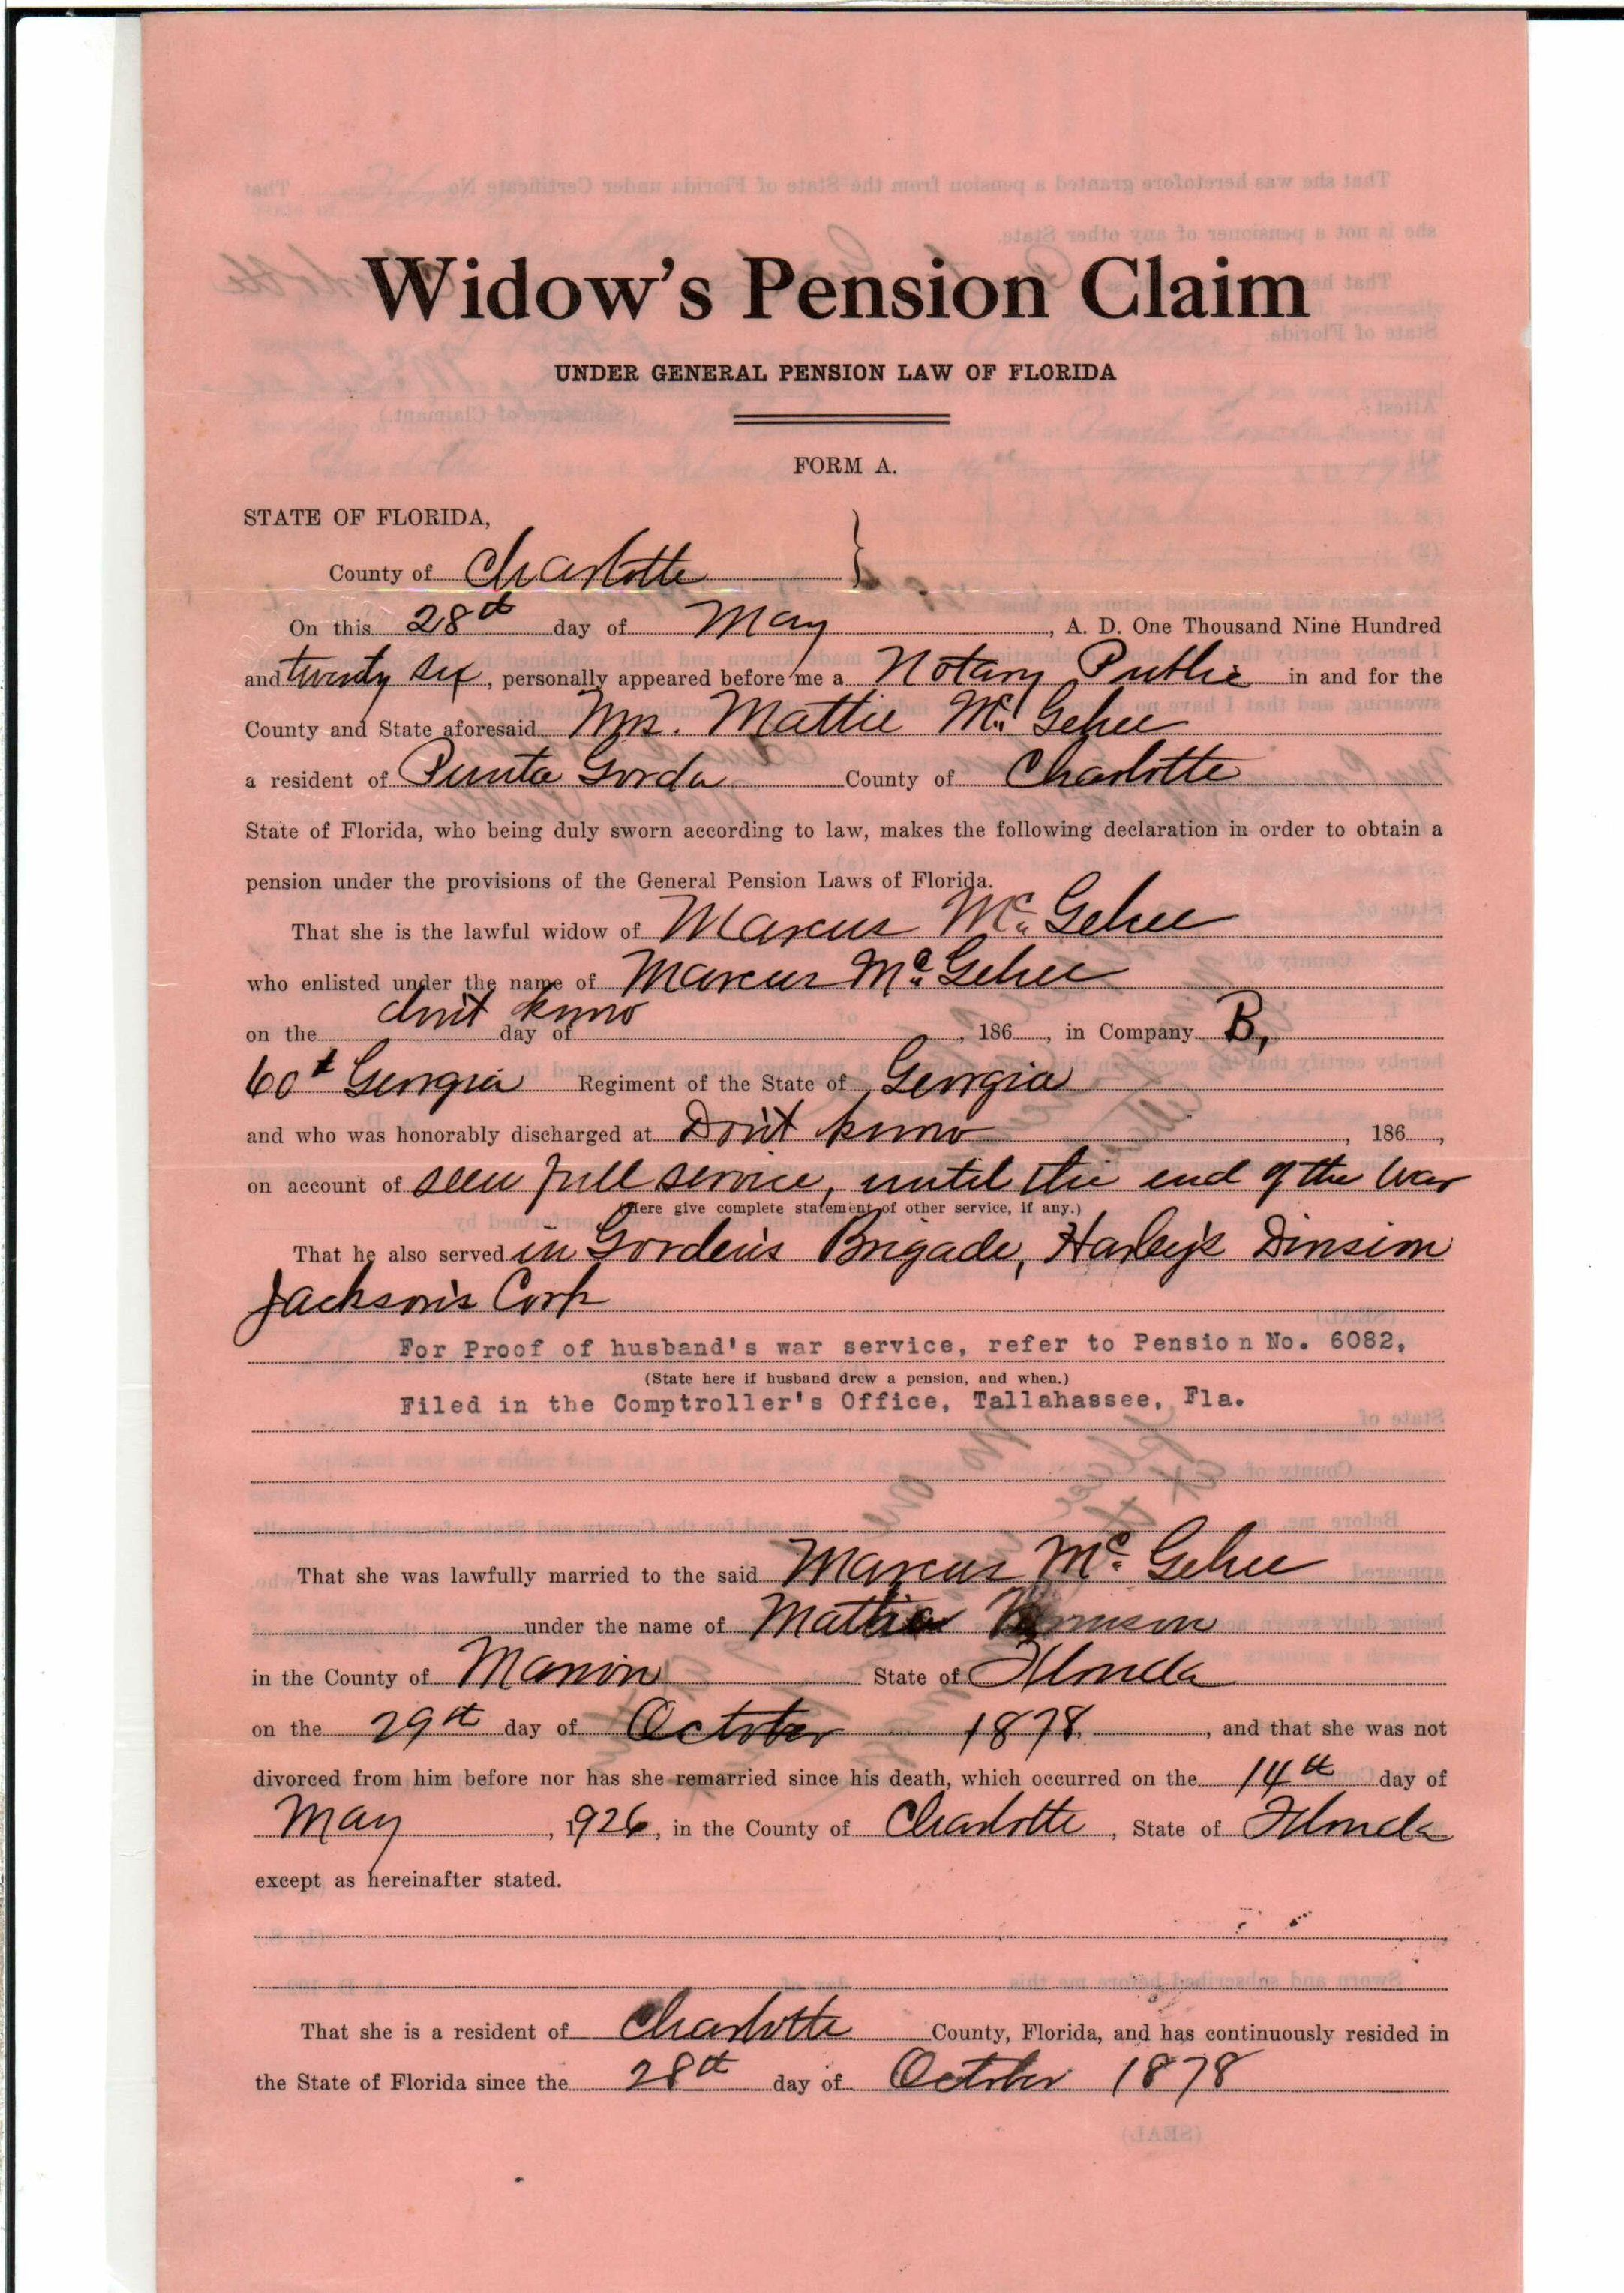 Widow's Pension Claim
UNDER GENERAL PENSION LAW OF FLORIDA
FORM A.
STATE OF FLORIDA,
County of Charlotte }
On this 28th day of May, A. D. One Thousand Nine Hundred
and twenty six, personally appeared before me a Notary Public in and for the
County and State aforesaid Mrs. Mattie McGehee
a resident of Punta Gorda County of Charlotte
State of Florida, who being duly sworn according to law, makes the following declaration in order to obtain a
pension under the provisions of the General Pension Laws of Florida.
That she is the lawful widow of Marcus McGehee
who enlisted under the name of Marcus McGehee
on the don't know day of , 186 , in Company B,
60t Georgia Regiment of the State of Georgia
and who was honorably discharged at Don't know , 186 ,
on account of seen full service, until the end of the War
(Here give complete statement of other service, if any.)
That he also served in Gorden's Brigade, Division
Jackson's Corp
For Proof of husband's war service, refer to Pension No. 6082,
(State here if husband drew a pension, and when.)
Filed in the Comptroller's Office, Tallahassee, Fla.
That she was lawfully married to the said Marcus McGehee
under the name of Mattie
in the County of Marion State of Florida
on the 29th day of October 1878, , and that she was not
divorced from him before nor has she remarried since his death, which occurred on the 14th day of
May , 1926, in the County of Charlotte, State of Florida
except as hereinafter stated.
That she is a resident of Charlotte County, Florida, and has continuously resided in
the State of Florida since the 28th day of October 1878